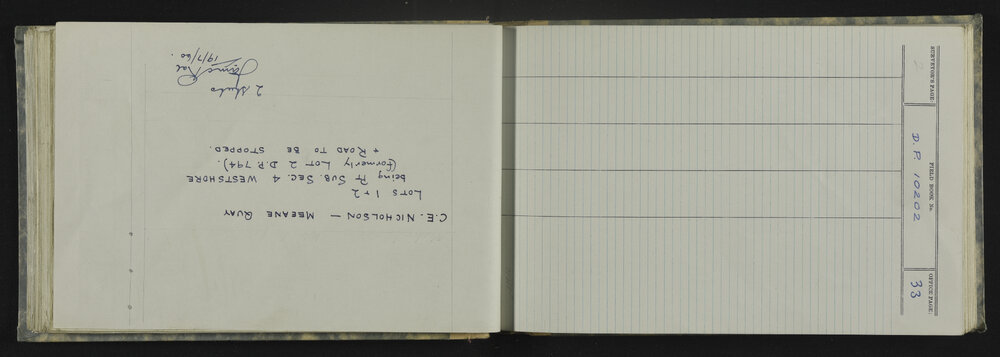 C.E. NICHOLSON — MEEANE QUAY
LOTS 1 + 2
being Pt SUB. SEC. 4 WESTSHORE
(formerly LOT 2 D.P. 794).
+ ROAD TO BE STOPPED.
2 sheets
19/7/60.
SURVEYOR'S PAGE:
FIELD BOOK No.
OFFICE PAGE:
D.P. 10202
33